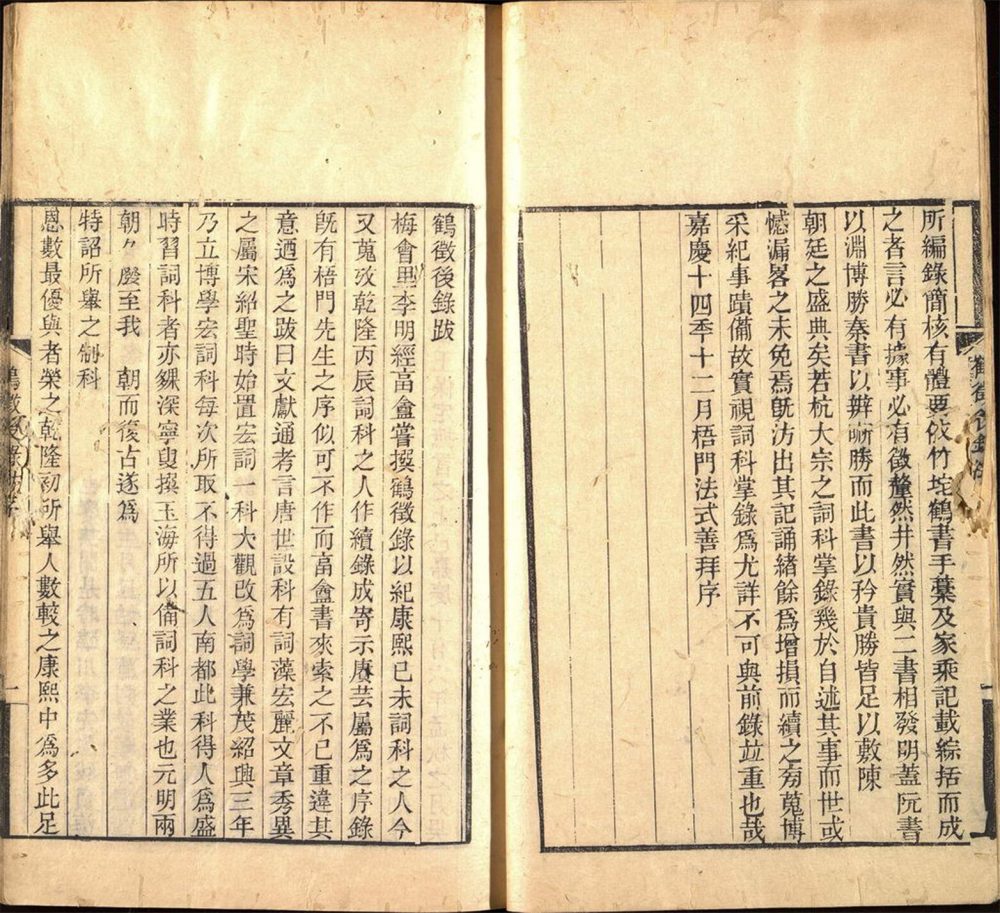 所編錄簡核有體要依竹垞鶴書手藁及家乘記載綜括而成
之者言必有據事必有徵釐然井然實與二書相發明蓋阮書
以淵博勝秦書以辯晰勝而此書以矜貴勝皆足以敷陳
朝廷之盛典矣若杭大宗之詞科掌錄幾於自述其事而世或
憾漏畧之未免焉旣汸出其記誦緒餘爲增損而續之芴蒐博
采紀事蹟備故實視詞科掌錄爲尤詳不可與前錄竝重也哉
嘉慶十四秊十二月梧門法式善拜序
鶴徵後錄跋
梅會里李明經富盦嘗撰鶴徵錄以紀康熙已未詞科之人今
又蒐攷乾隆丙辰詞科之人作續錄成寄示賡芸屬爲之序錄
旣有梧門先生之序似可不作而富盦書來索之不已重違其
意迺爲之跋曰文獻通考言唐世設科有詞藻宏麗文章秀異
之屬宋紹聖時始置宏詞一科大觀改爲詞學兼茂紹興三年
乃立博學宏詞科每次所取不得過五人南都此科得人爲盛
時習詞科者亦緜深寧叟撰玉海所以僃詞科之業也元明兩
朝久廢至我 朝而復古遂爲
特詔所舉之制科
恩數最優與者榮之乾隆初所舉人數較之康熙中爲多此足
鶴徵後錄
一